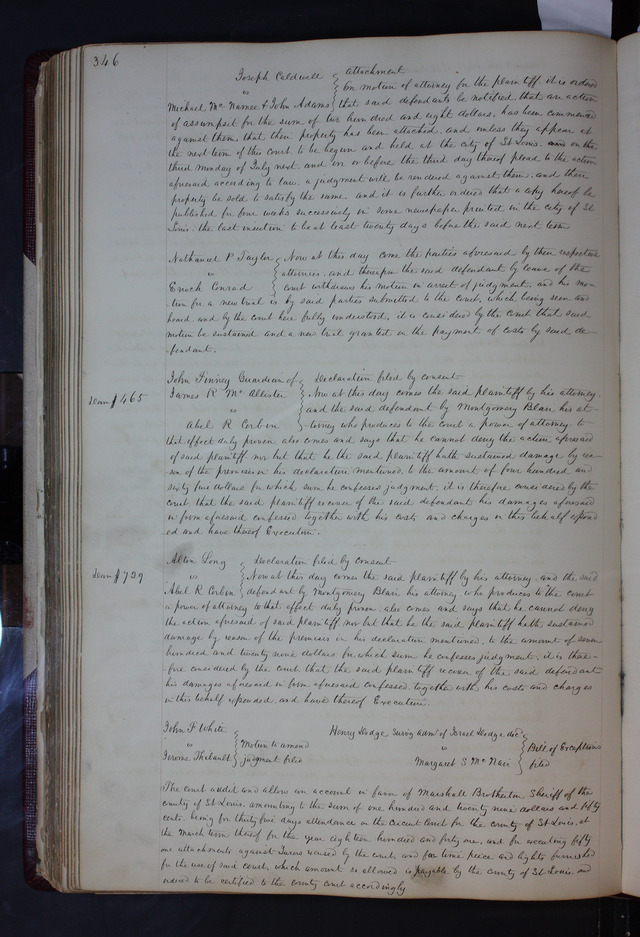 346
Joseph Caldwell Attachment
vs On motion of attorney for the plaintiff it is ordered
Michael McNamee & John Adams that said defendants be notified, that an action
of assumpsit for the sum of two hundred and eight dollars, has been commenced
against them, that their property has been attached, and unless they appear at
the next term of this court to be begun and held at the city of St Louis on the
third monday of July next and on or before the third day thereof plead to the action
aforesaid according to law a judgment will be rendered against them, and their
property be sold to satisfy the same, and it is further ordered that a copy hereof be
published for four weeks successively in some newspaper printed in the city of St
Louis, the last insertion to be at least twenty days before the said next term
Nathaniel P Taylor Now at this day come the parties aforesaid by their respective
vs attornies, and thereupon the said defendant by leave of the
Enoch Conrad court withdraws his motion in arrest of judgment, and his mo-
tion for a new trial is by said parties submitted to the court, which being seen and
heard, and by the court here fully understood, it is considered by the court that said
motion be sustained and a new trial granted on the payment of costs by said de-
fendant.
John Finney Guardian of Declaration filed by consent
Dam $465 James R McAllister Now at this day comes the said plaintiff by his attorney
vs and the said defendant by Montgomery Blair his at-
Abel R Corbin torney who produces to the court a power of attorney to
that effect duly proven also comes and says that he cannot deny the action aforesaid
of said plaintiff nor but that he the said plaintiff hath sustained damage by rea-
son of the premises in his declaration mentioned, to the amount of four hundred and
sixty five dollars for which sum he confesses judgment, it is therefore considered by the
court, that the said plaintiff recover of the said defendant his damages aforesaid
in form aforesaid confessed together with his costs and charges in this behalf expend
ed and have thereof Execution.
Alton Long Declaration filed by consent
Dam $729 vs Now at this day comes the said plaintiff by his attorney, and the said
Abel R Corbin defendant by Montgomery Blair his attorney who produces to the court
a power of attorney to that effect duly proven, also comes and says that he cannot deny
the action aforesaid of said plaintiff nor but that he the said plaintiff hath sustained
damage by reason of the premises in his declaration mentioned, to the amount of seven
hundred and twenty nine dollars for which sum he confesses judgment, it is there-
fore considered by the court that the said plaintiff recover of the said defendant
his damages aforesaid in form aforesaid confessed, together with his costs and charges
in this behalf expended, and have thereof Execution.
John F White Henry Dodge Surviv admr of Israel Dodge decd
vs Motion to amend vs Bill of Exceptions
Jerome Thibault judgment filed Margaret S McNair filed
The court audit and allow an account in favor of Marshall Brotherton Sheriff of the
county of St Louis, amounting to the sum of one hundred and twenty nine dollars and fifty
cents, being for thirty five days attendance on the Circuit Court for the county of St Louis, at
the March term thereof for the year eighteen hundred and forty one, and for executing fifty
one attachments against Jurors issued by the court, and for time piece and lights furnished
for the use of said court, which amount is allowed is payable by the county of St Louis, and
ordered to be certified to the county court accordingly